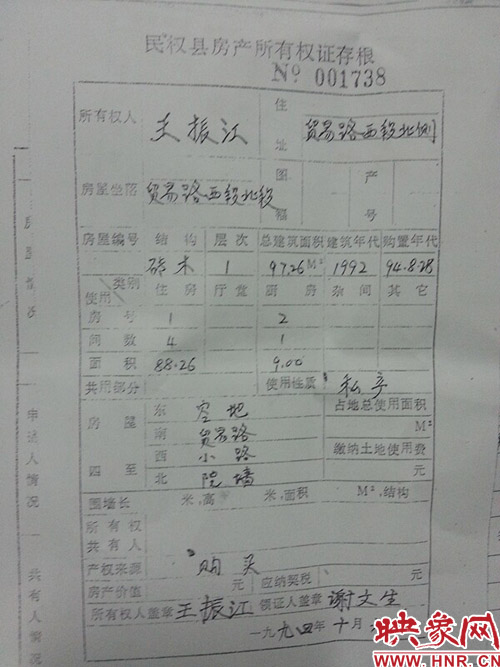 民权县房产所有权证存根
No 001738
所有权人 王振江 住址 贸易路西段北侧
房屋坐落 贸易路西段北段 图幅 产号
房屋编号 结构 层次 总建筑面积 建筑年代 购置年代
砖木 1 97.26M² 1992 94.8.28
使用 类别 住房 厅堂 厨房 杂间 其它
房号 1 2
间数 4 1
面积 88.26 9.00
共用部分 使用性质 私产
房屋四至 东 空地 占地总使用面积
南 贸易路 M²
西 小路 缴纳土地使用费
北 院墙 元
围墙长 米,高 米,面积 M²,结构
所有权
共有人
产权来源 购买
房产价值 元 应纳契税 元
所有权人盖章 王振江 领证人盖章 谢文生
一九九四年十月
申请人情况
共有人情况
映象网
www.HNR.cn